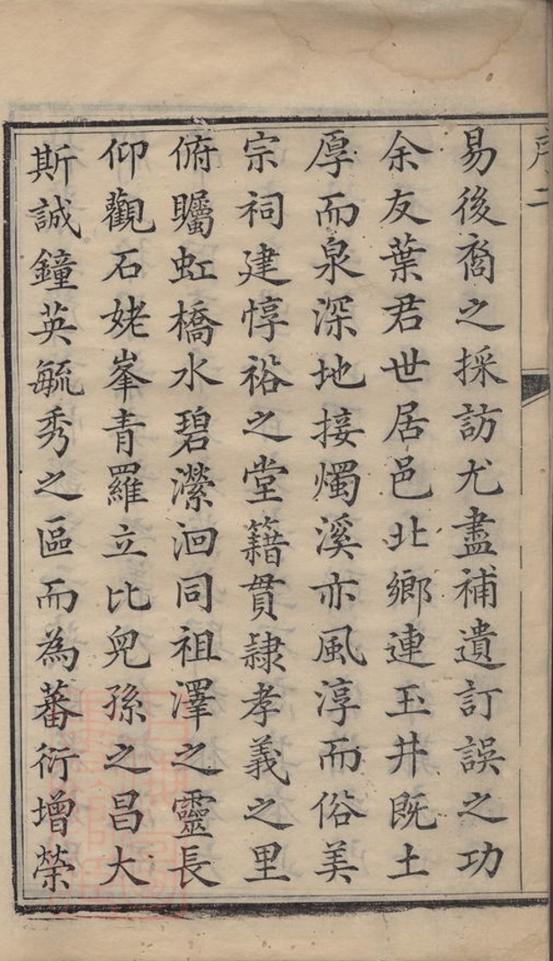 序二
易後裔之採訪尤盡補遺訂誤之功
余友葉君世居邑北鄉連玉井既土
厚而泉深地接燭溪亦風淳而俗美
宗祠建惇裕之堂籍貫隸孝義之里
俯矚虹橋水碧瀠洄同祖澤之靈長
仰觀石姥峯青羅立比兒孫之昌大
斯誠鐘英毓秀之區而為蕃衍增榮